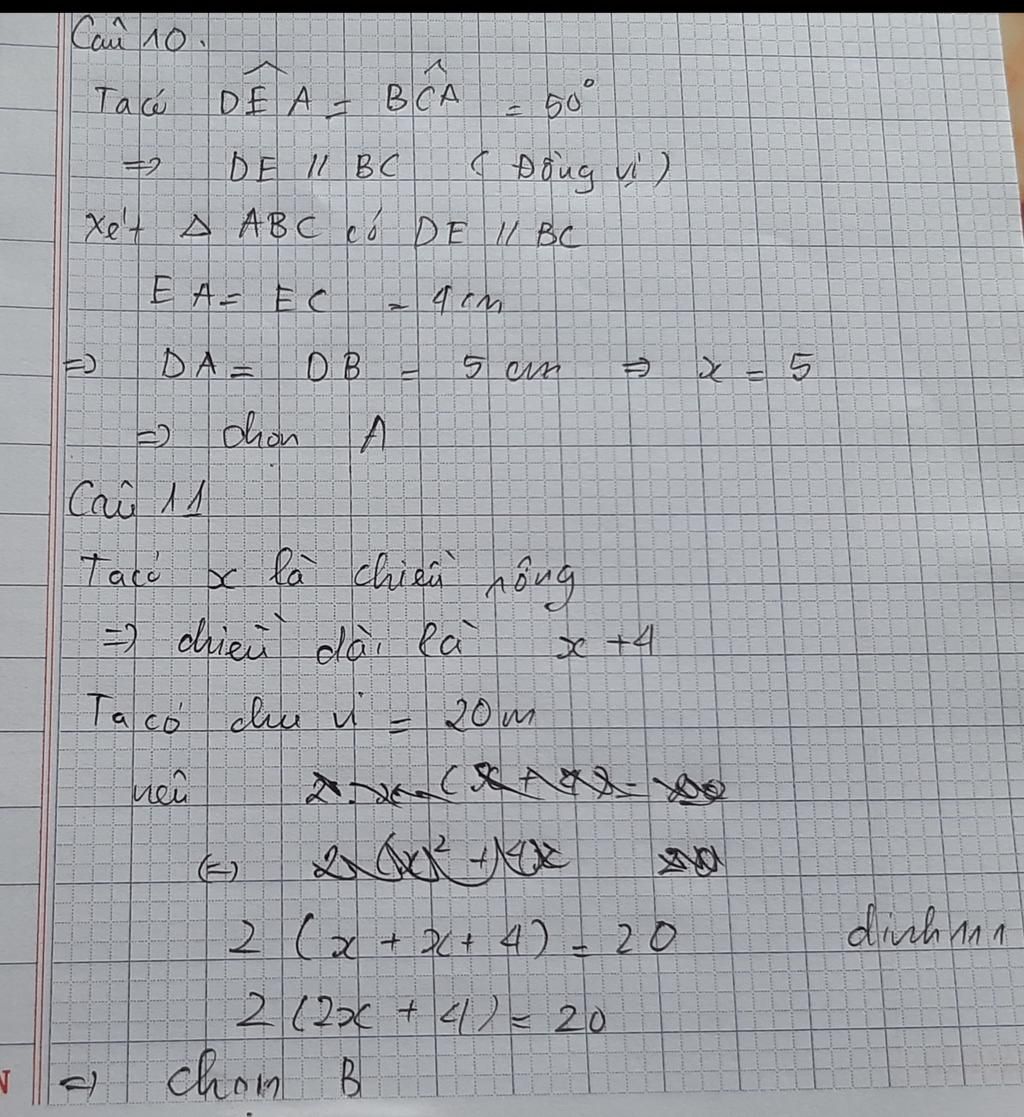 Câu 10.
Ta có DEA = BCA = 50°
=> DE // BC ( Đồng vị )
Xét △ ABC có DE // BC
EA = EC = 4 cm
=> DA = DB = 5 cm => x = 5
=> chọn A
Câu 11
Ta có x là chiều rộng
=> chiều dài là x + 4
Ta có chu vi = 20 m
nên
(=)
2 (x + x + 4) = 20
2 (2x + 4) = 20
=> chọn B